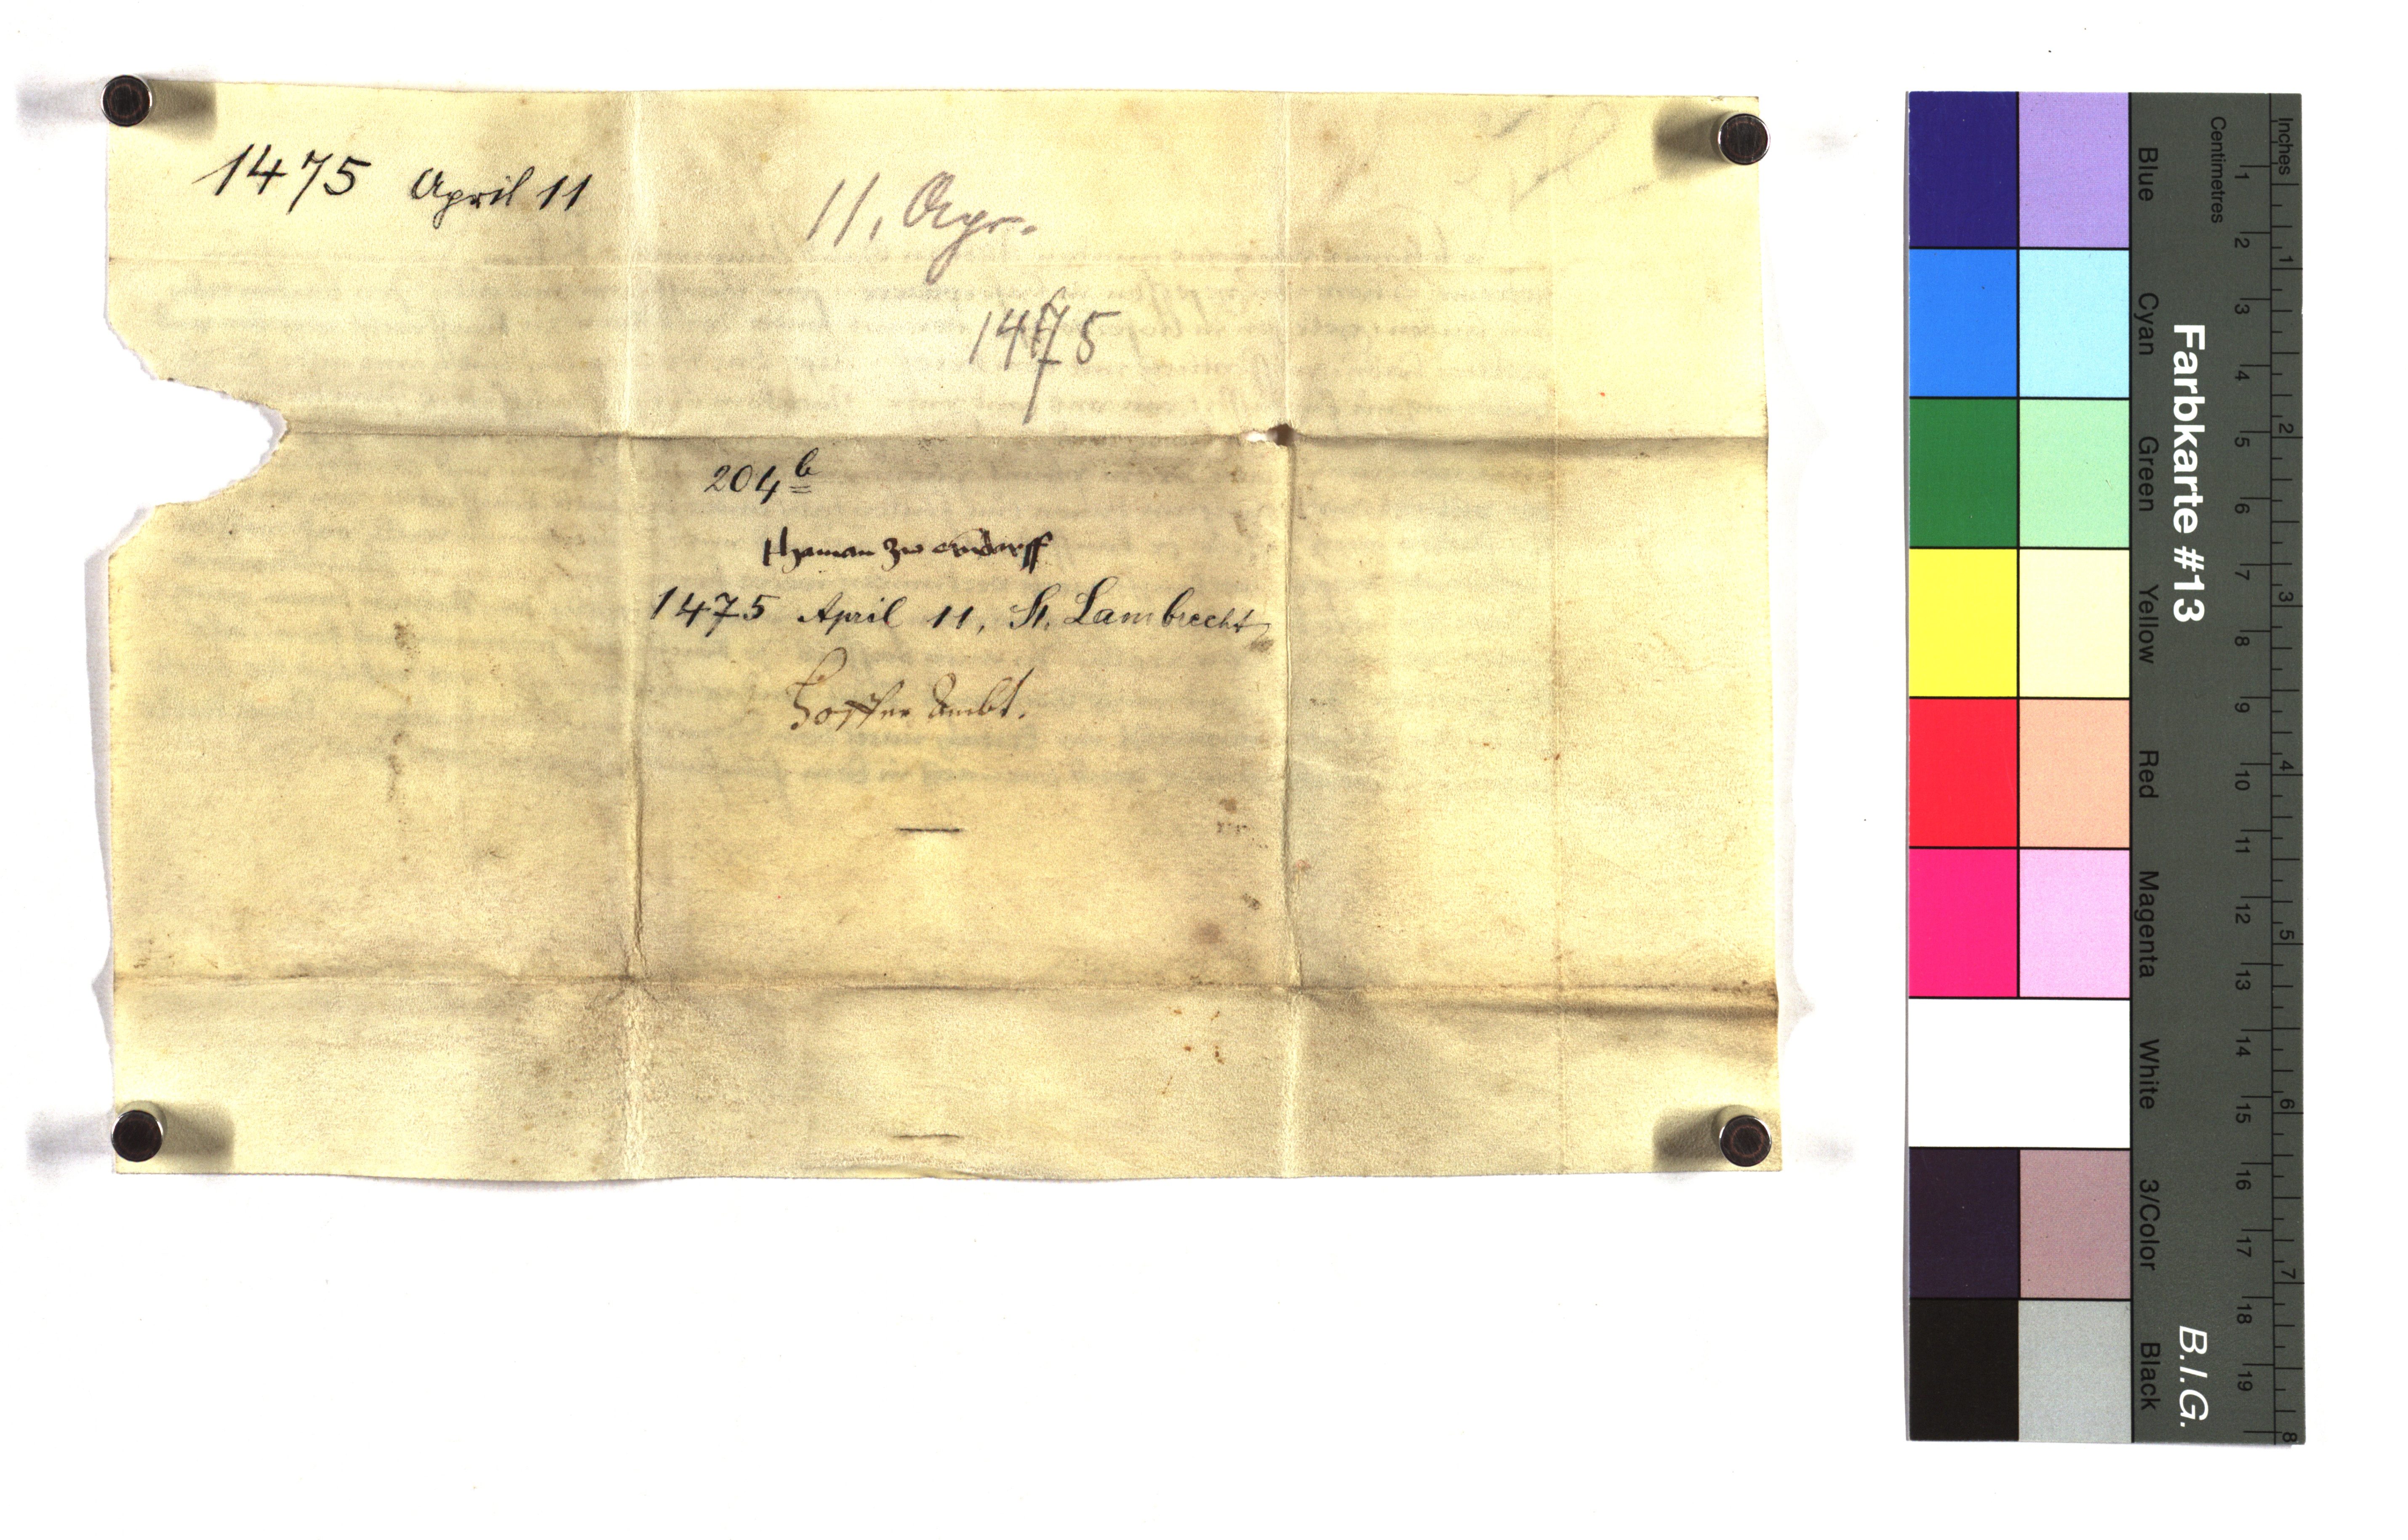 1475 April 11
11. Apr.
1475
204b
thaman zw erndorff
1475 April 11, St. Lambrecht
Hoffer Ambt.
Blue Cyan Green Yellow Red Magenta White 3/Color Black
Farbkarte #13 B.I.G.
Centimetres 1 2 3 4 5 6 7 8 9 10 11 12 13 14 15 16 17 18 19
Inches 1 2 3 4 5 6 7 8